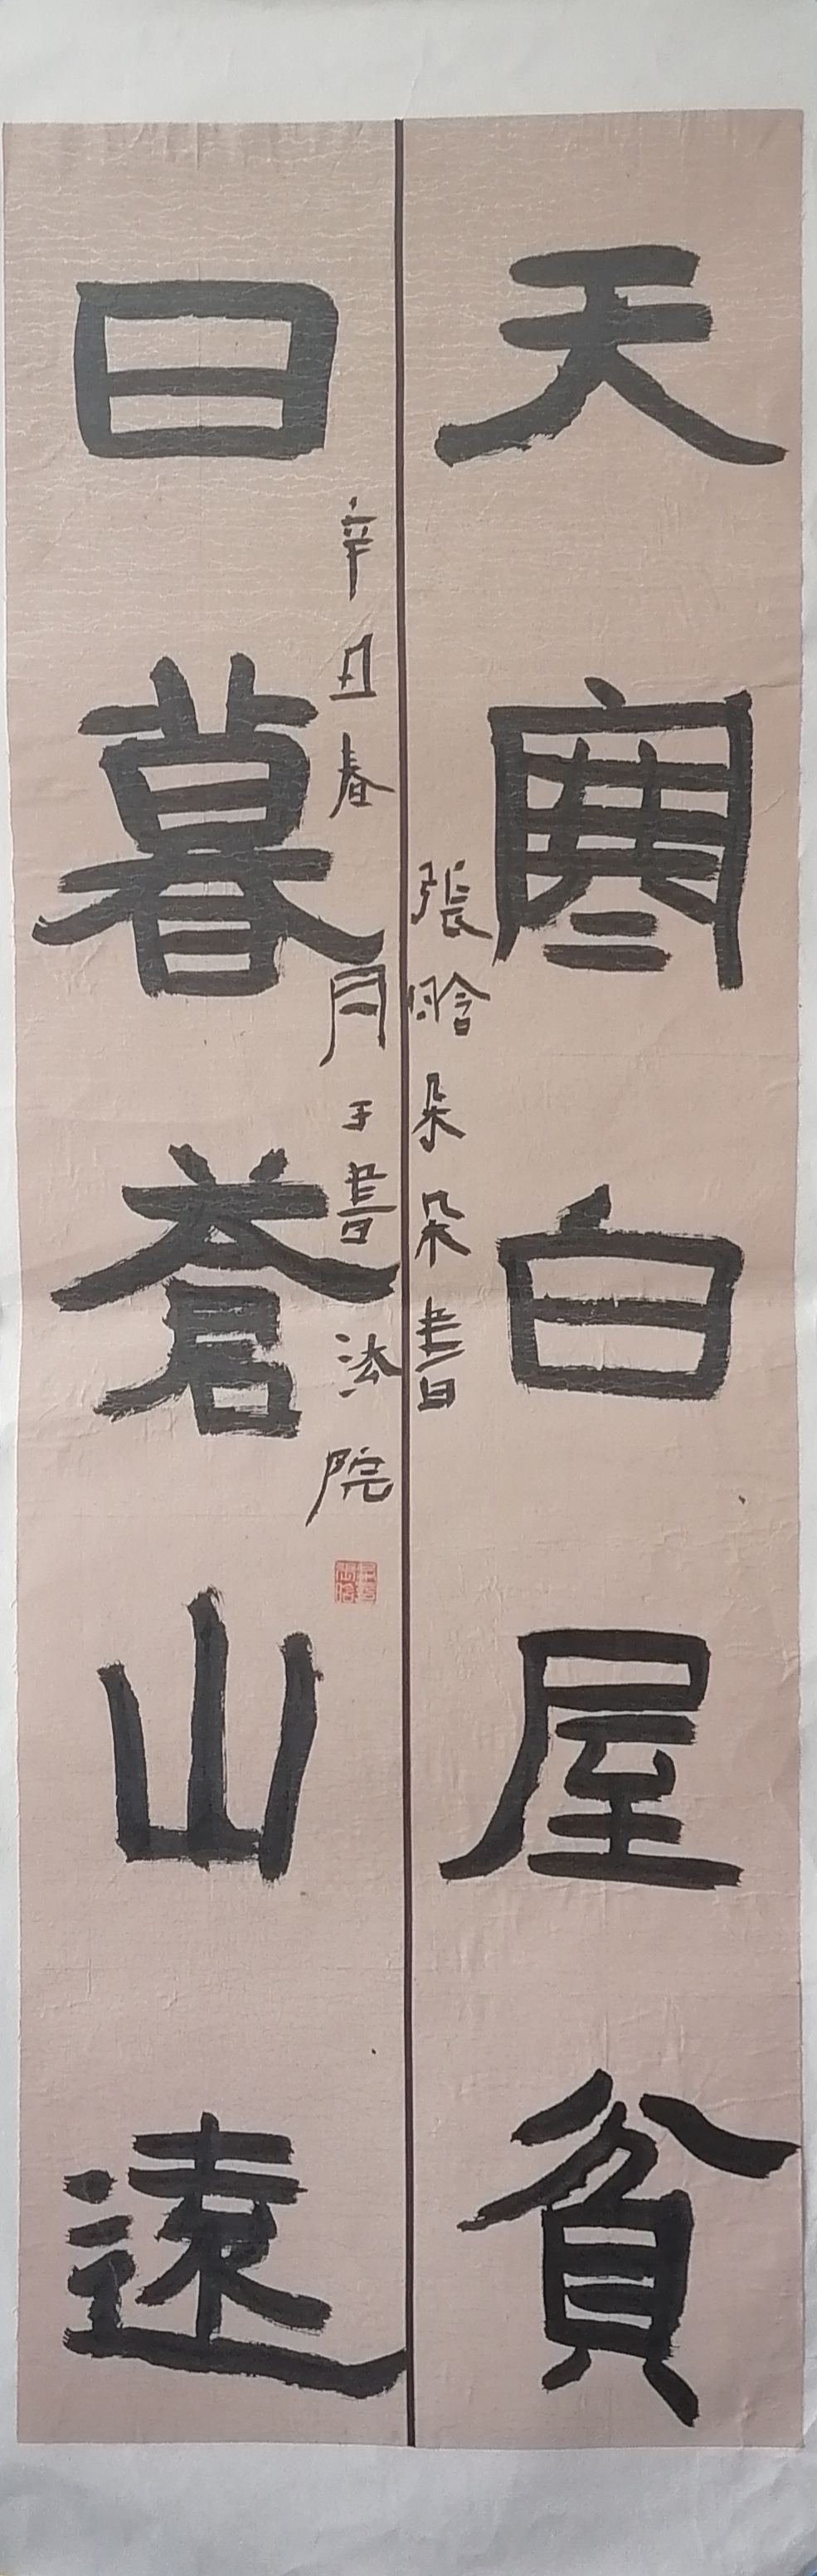 天寒白屋貧
張晗朵朵書
日暮蒼山遠
辛丑春月于書法院